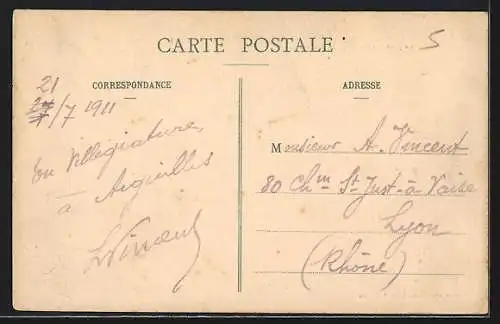 CARTE POSTALE
5
CORRESPONDANCE
ADRESSE
21
/7 1911
en Villégiature
à Aiguilles
Vincent
Monsieur A. Vincent
80 Chm St Just-à-Vaise
Lyon
(Rhône)